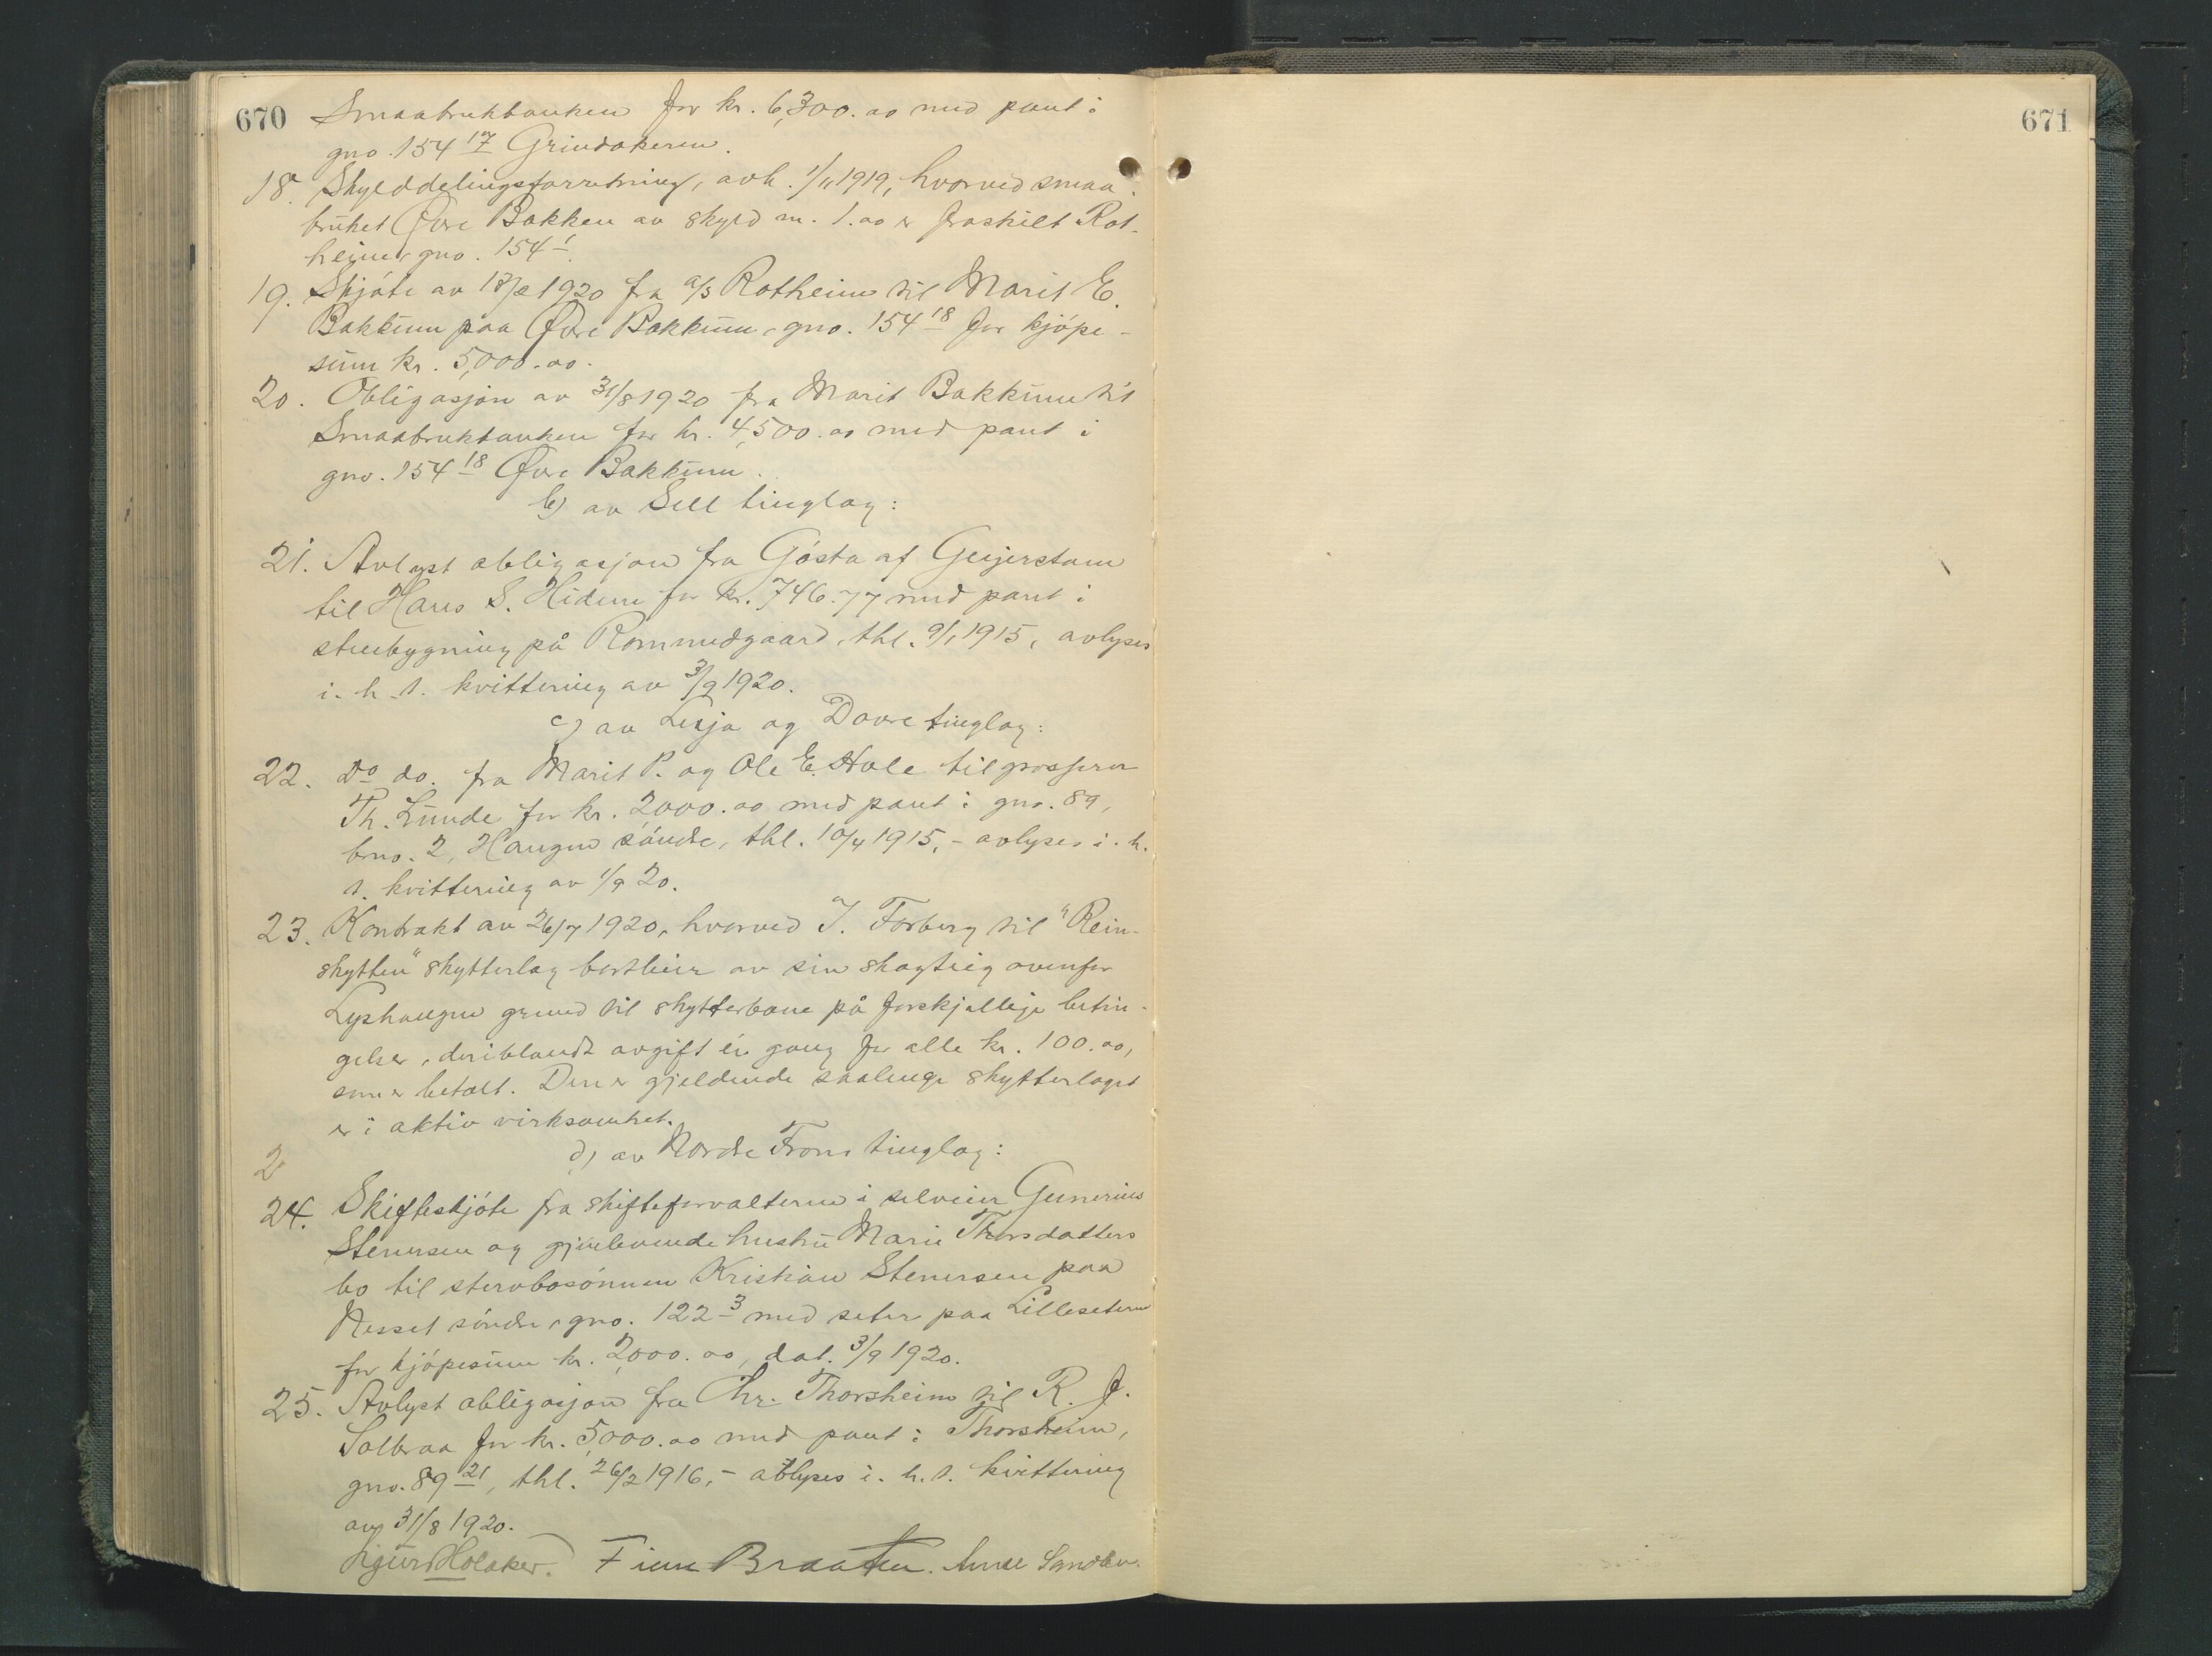 670
Smaabrukbanken for kr. 6,300.00 med pant i
gno. 154 17 Grindakeren.
18. Skylddelingsforretning, avh. 1/11 1919, hvorved smaa-
bruket Øvre Bakken av skyld m. 1.00 er fraskilt Rot-
heim, gno. 154 1.
19. Skjöte av 18/8 1920 fra a/s Rotheim til Marit E.
Bakkum paa Øvre Bakkum, gno. 154 18 for kjöpe-
sum kr. 5,000.00.
20. Obligasjon av 31/8 1920 fra Marit Bakkum til
Smaabrukbanken for kr. 4,500.00 med pant i
gno. 154 18 Øvre Bakkum.
b) av Sell tinglag:
21. Avlyst obligasjon fra Gösta af Geijerstam
til Hans S. Hidem for kr. 746.77 med pant i
stuebygning på Rommedgaard, thl. 9/1 1915, avlyses
i. h. t. kvittering av 3/9 1920.
c) av Lesja og Dovre tinglag:
22. Do do. fra Marit P. og Ole E. Hole til grosserer
Th. Lunde for kr. 2,000.00 med pant i gno. 89,
brno. 2, Haugen söndre, thl. 10/4 1915, - avlyses i. h.
t. kvittering av 1/9 20.
23. Kontrakt av 26/7 1920, hvorved J. Forberg til "Rein-
skytten" skytterlag bortleier av sin skogteig ovenfor
Lyshaugen grund til skytterbane på forskjellige betin-
gelser, deriblandt avgift én gang for alle kr. 100.00,
som er betalt. Den er gjeldende saalenge skytterlaget
er i aktiv virksomhet.
2
d) av Nordre Frons tinglag:
24. Skifteskjöte fra skifteforvalteren i selveier Gunerius
Stenersen og gjenlevende hustru Marie Thorsdatters
bo til stervbosönnen Kristian Stenersen paa
Nesset söndre, gno. 122 3 med seter paa Lilleseteren
for kjöpesum kr. 2,000.00, dat. 3/9 1920.
25. Avlyst obligasjon fra Chr. Thorsheim til R. J.
Solbraa for kr. 5,000.00 med pant i Thorsheim,
gno. 89 21, thl. 26/2 1916, - avlyses i. h. t. kvittering
av 31/8 1920.
Sigurd Holaker. Finn Braaten.
671